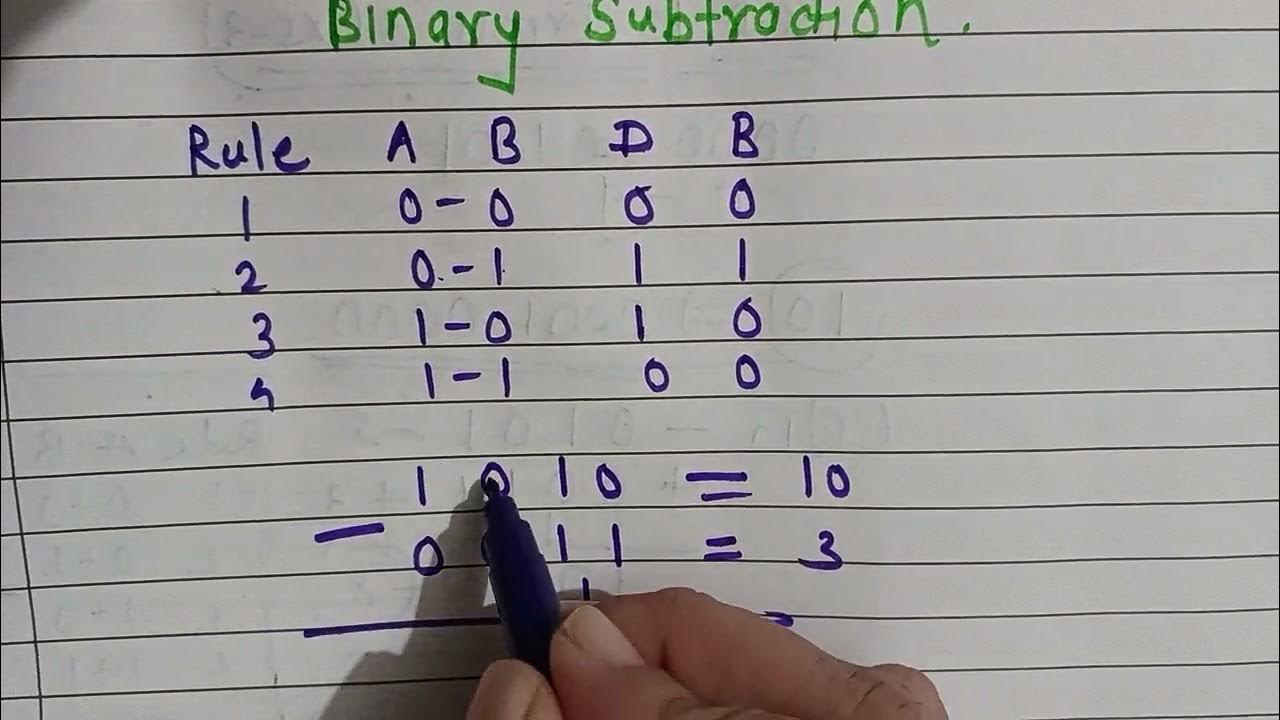 Binary Subtraction.
Rule A B D B
1 0 - 0 0 0
2 0 - 1 1 1
3 1 - 0 1 0
4 1 - 1 0 0
1 0 1 0 = 10
- 0 0 1 1 = 3
1